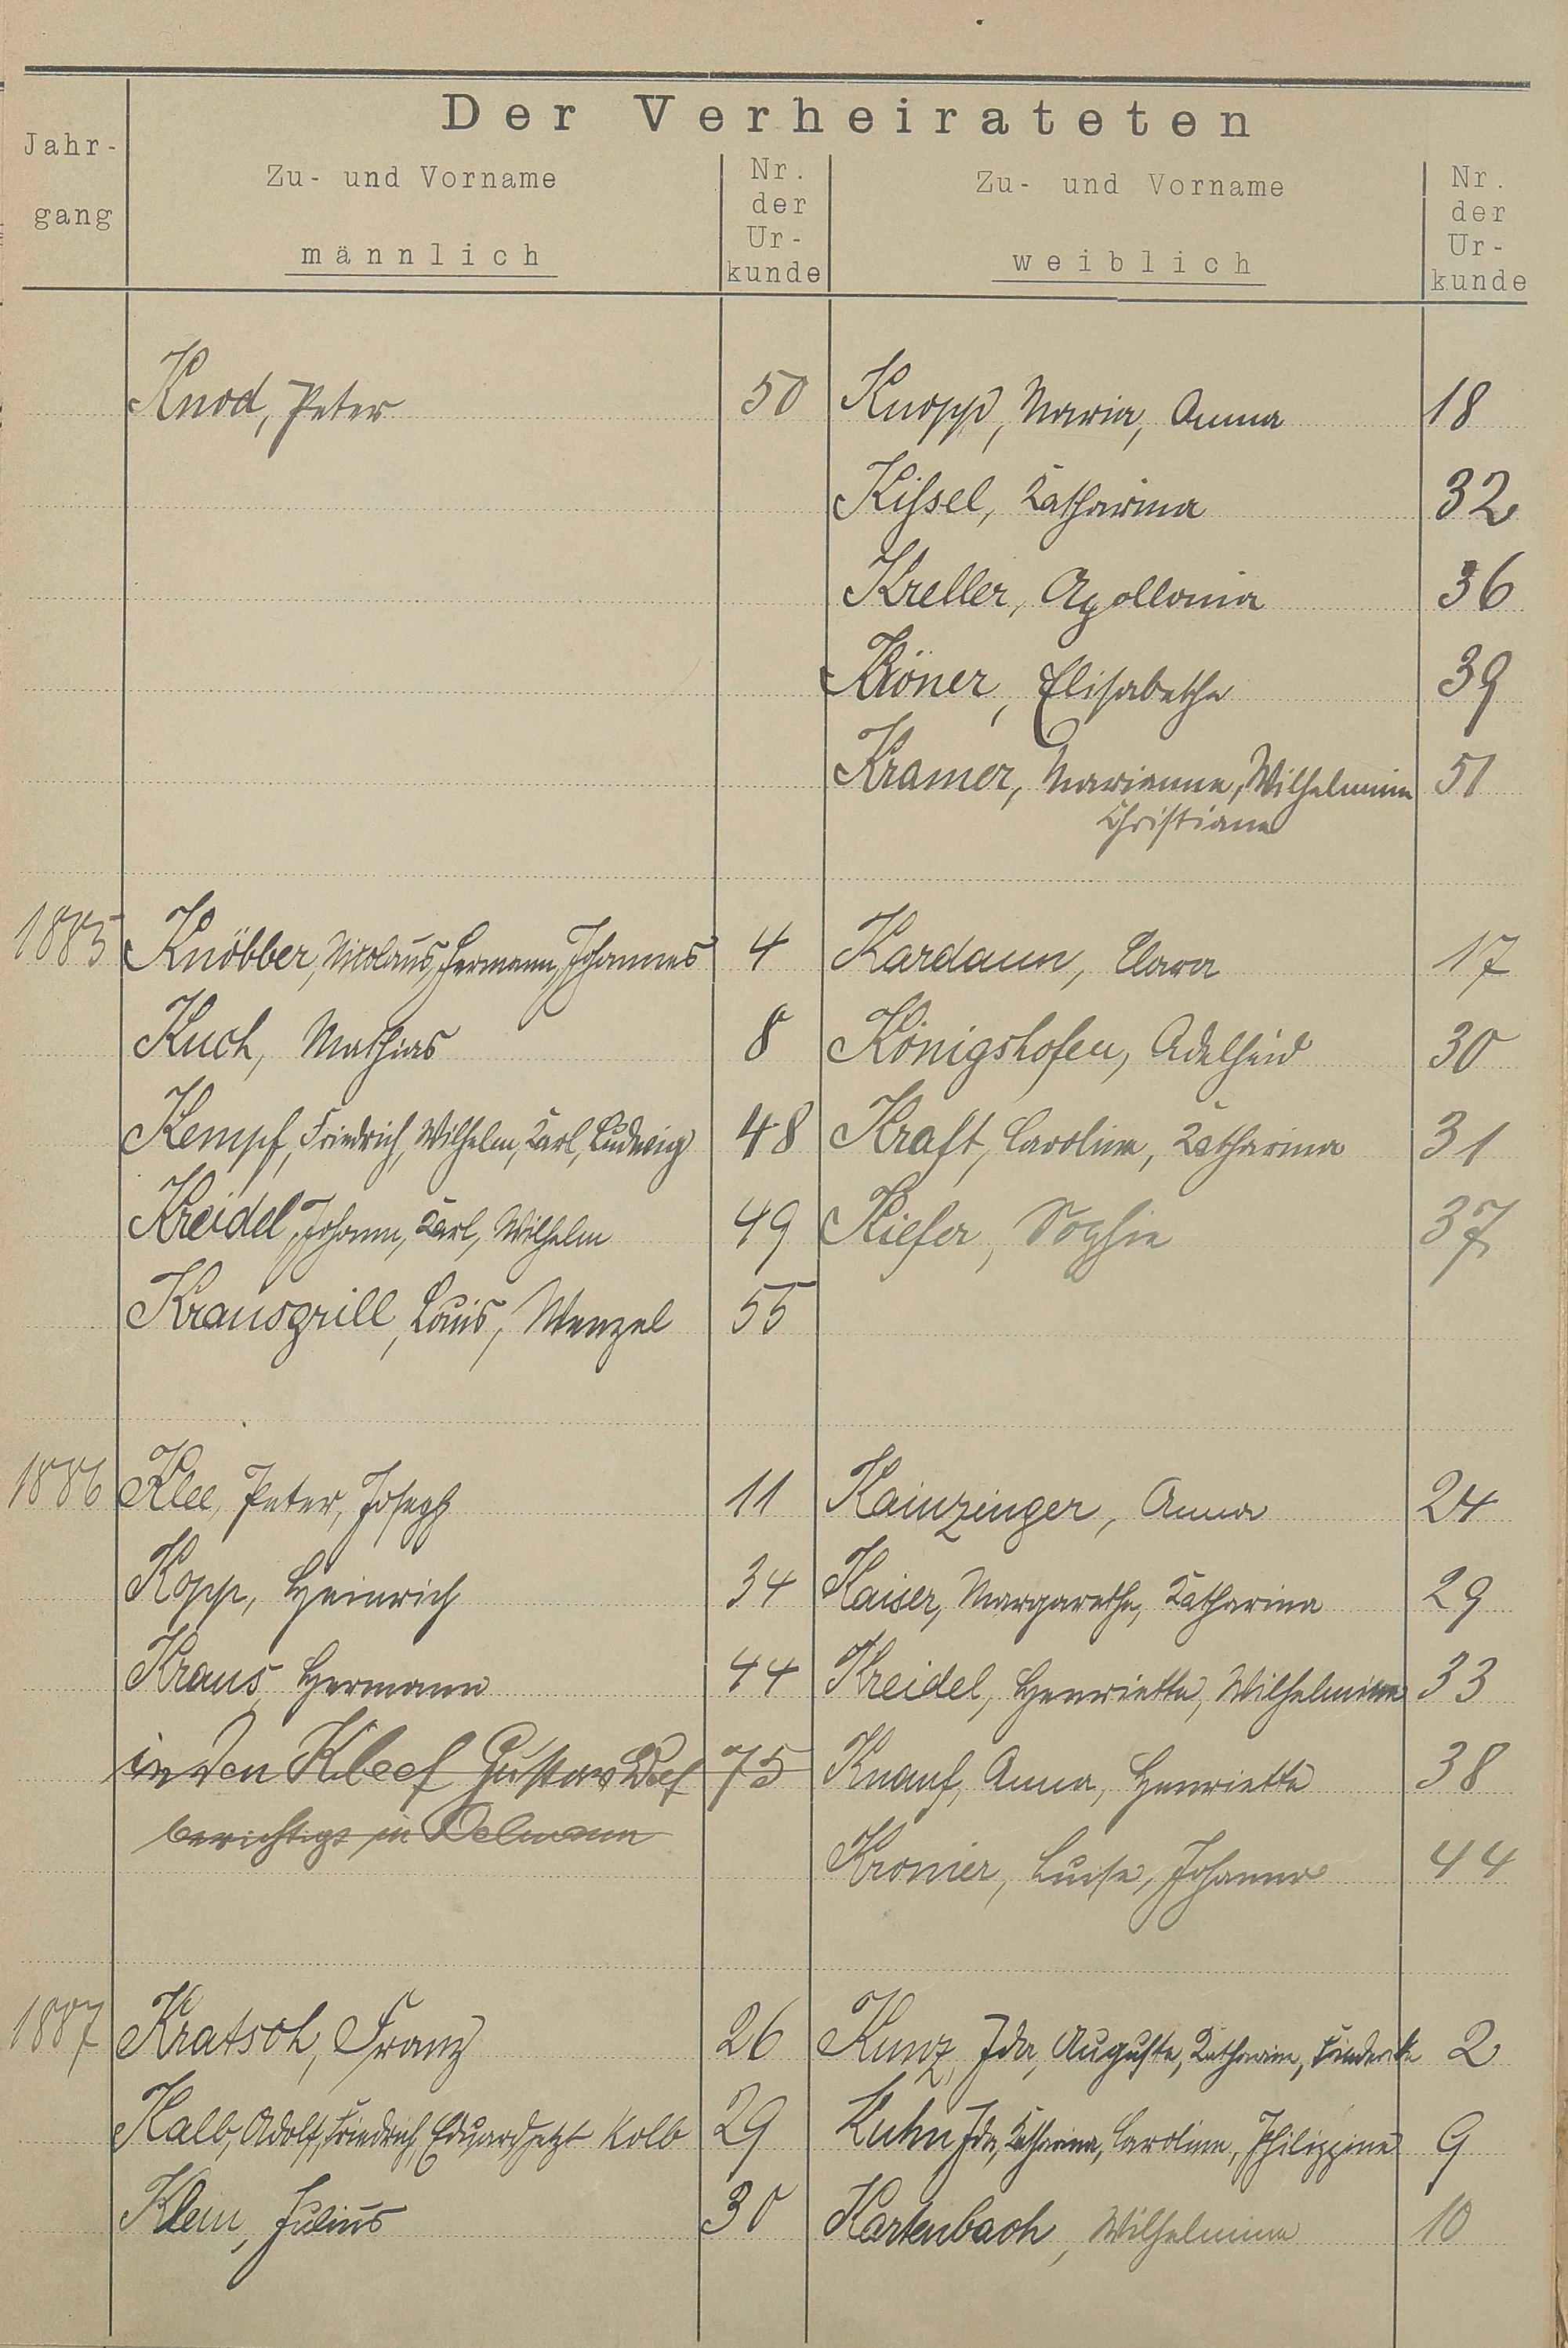 Der Verheirateten
Jahr-
gang
Zu- und Vorname
männlich
Nr.
der
Ur-
kunde
Zu- und Vorname
weiblich
Nr.
der
Ur-
kunde
Knod, Peter 50 Knopp, Maria, Anna 18
Kissel, Katharina 32
Kreller, Apollonia 36
Kröner, Elisabetha 39
Kramer, Marianne, Wilhelmine 51
Christiane
1885 Knöbber, Nicolaus, Hermann, Johannes 4 Kardaun, Clara 17
Kuch, Mathias 8 Königshofen, Adelheid 30
Kempf, Friedrich, Wilhelm, Karl, Ludwig 48 Kraft, Caroline, Katharina 31
Kreidel, Johann, Karl, Wilhelm 49 Kiefer, Sophie 37
Krausgrill, Louis, Wenzel 55
1886 Klee, Peter, Joseph 11 Kainzinger, Anna 24
Kopp, Heinrich 34 Kaiser, Margaretha, Katharina 29
Kraus Hermann 44 Kreidel, Henriette, Wilhelmine 33
in den Kleef Gustav 75 Knauf, Anna, Henriette 38
berichtigt in
Kronier, Luise, Johanna 44
1887 Kratsch, Franz 26 Kunz, Ida, Auguste, Katharina, Friederike 2
Kalb, Adolf, Friedrich, Eduard jetzt Kolb 29 Kuhn Ida, Katharina, Caroline, Philippine 9
Klein, Julius 30 Kartenbach, Wilhelmine 10